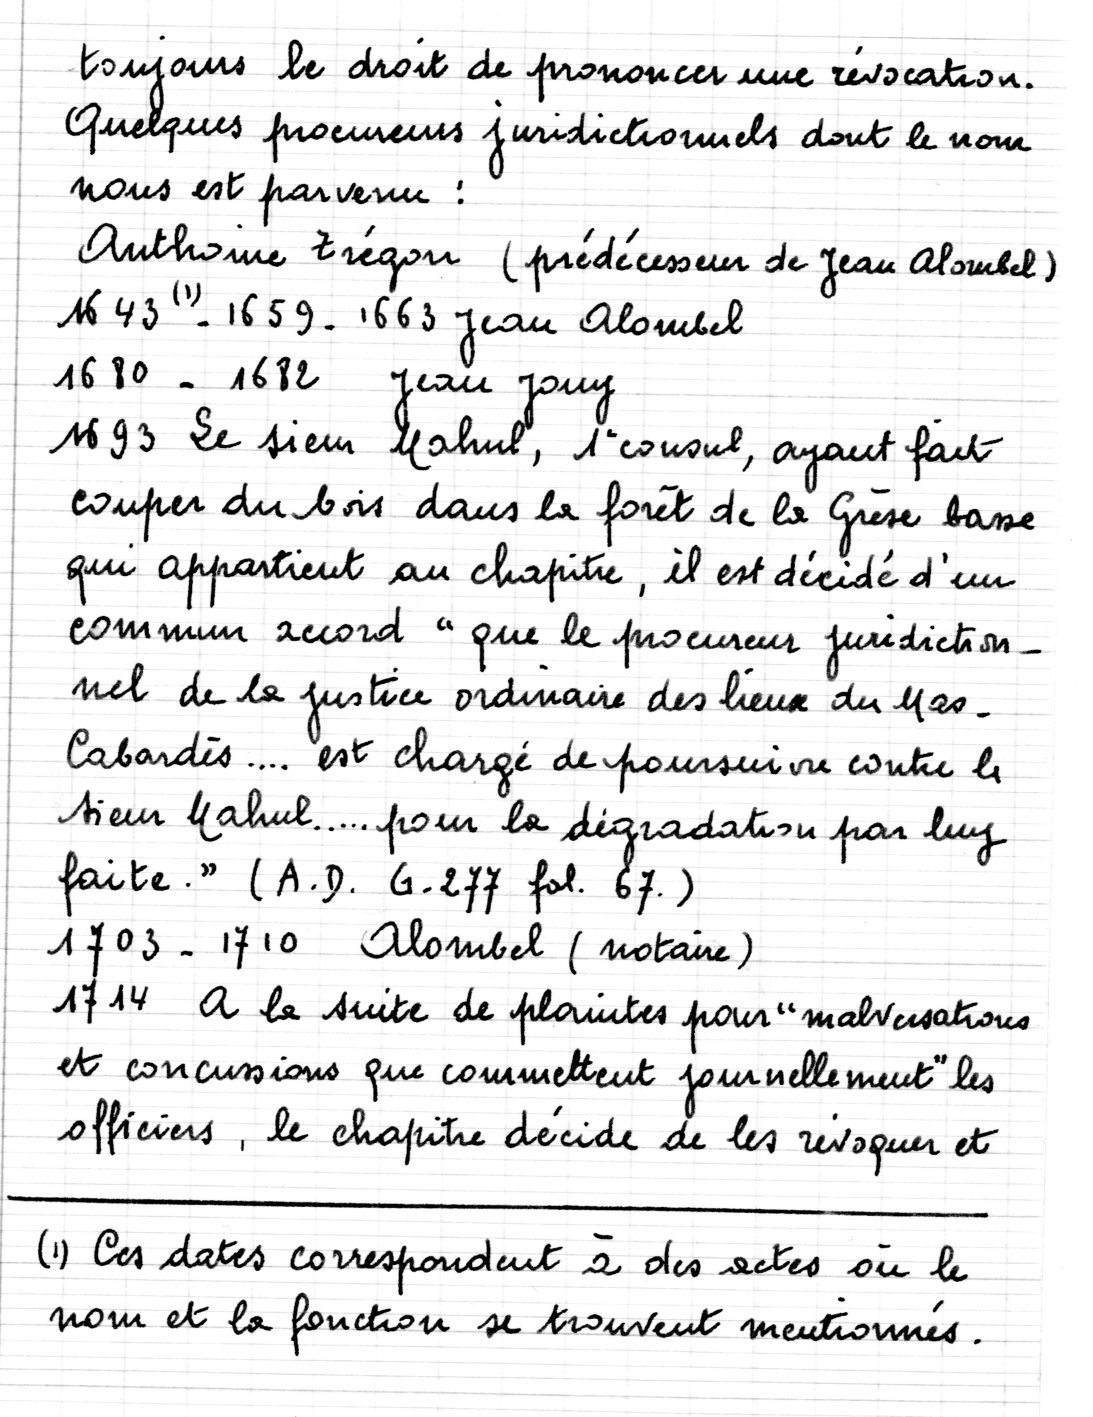 toujours le droit de prononcer une révocation.
Quelques procureurs juridictionnels dont le nom
nous est parvenu :
Anthoine Trégon (prédécesseur de Jean Alombel)
1643 (1) - 1659 - 1663 Jean Alombel
1680 - 1682 Jean Jouy
1693 Le sieur Mahul, 1° consul, ayant fait
couper du bois dans la forêt de la Grèse basse
qui appartient au chapitre, il est décidé d'un
commun accord " que le procureur juridiction-
nel de la justice ordinaire des lieux du Mas-
Cabardès .... est chargé de poursuivre contre le
sieur Mahul..... pour la dégradation par luy
faite." (A.D. G.277 fol. 67.)
1703 - 1710 Alombel (notaire)
1714 A la suite de plaintes pour "malversations
et concussions que commettent journellement" les
officiers, le chapitre décide de les révoquer et
(1) Ces dates correspondent à des actes où le
nom et la fonction se trouvent mentionnés.